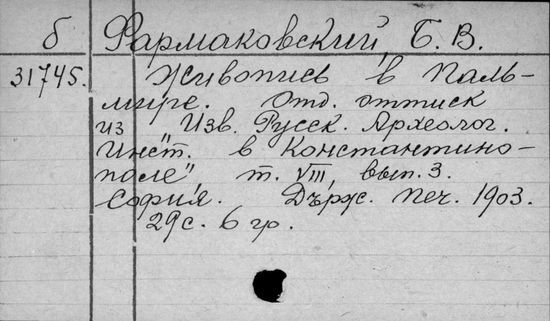 б Фармаковский, Б. В.
31745. Живопись в Паль-
мире. Отд. оттиск
из "Изв. Русск. Археолог.
Инст. в Константино-
поле", т. VIII, вып. 3.
София. Държ. печ. 1903.
29 с. 6 гр.